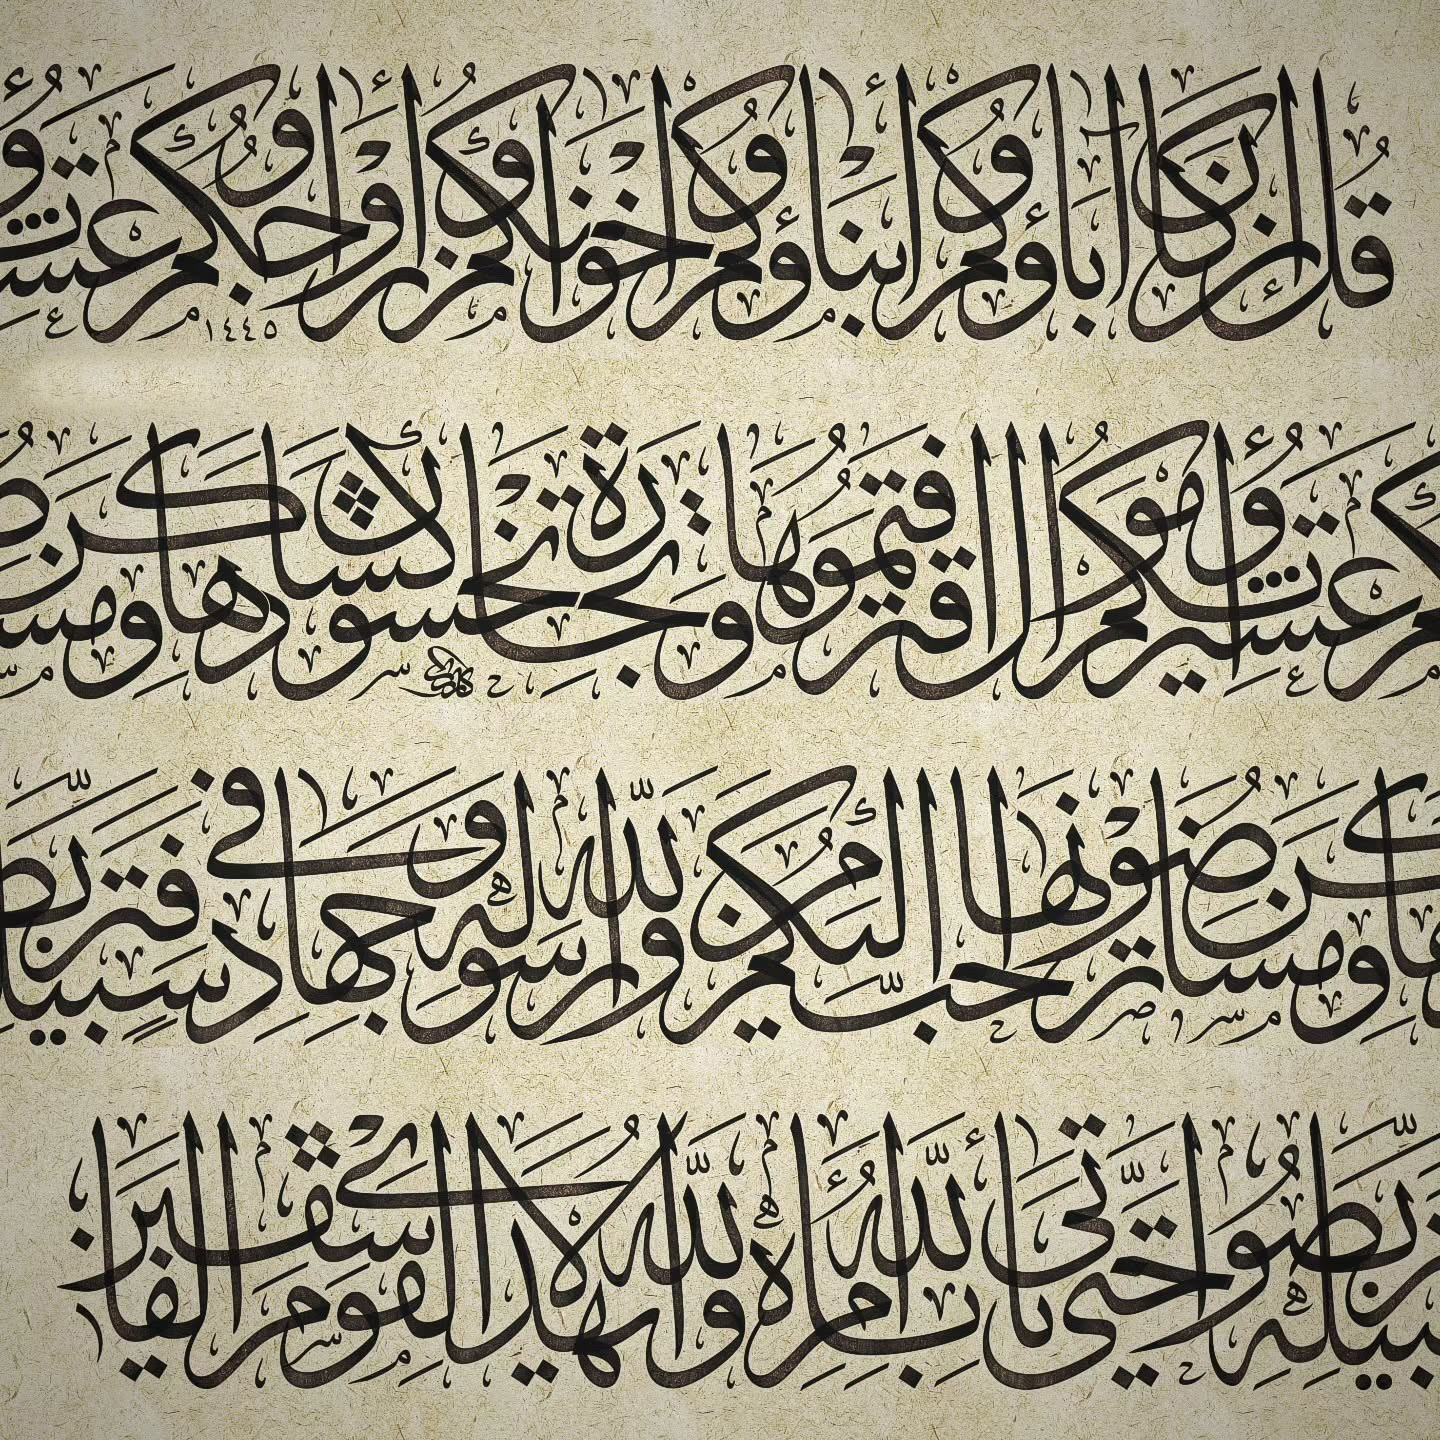 قُل إن كان آباؤكم وأبناؤكم وإخوانكم وأزواجكم وعش
١٤٤٥
وعشيرتكم وأموال اقترفتموها وتجارة تخشون كسادها ومسا
ومساكن ترضونها أحبّ إليكم من اللّه ورسوله وجهاد في سبيله فتربص
فتربصوا حتّى يأتي اللّه بأمره واللّه لا يهدي القوم الفاسقين